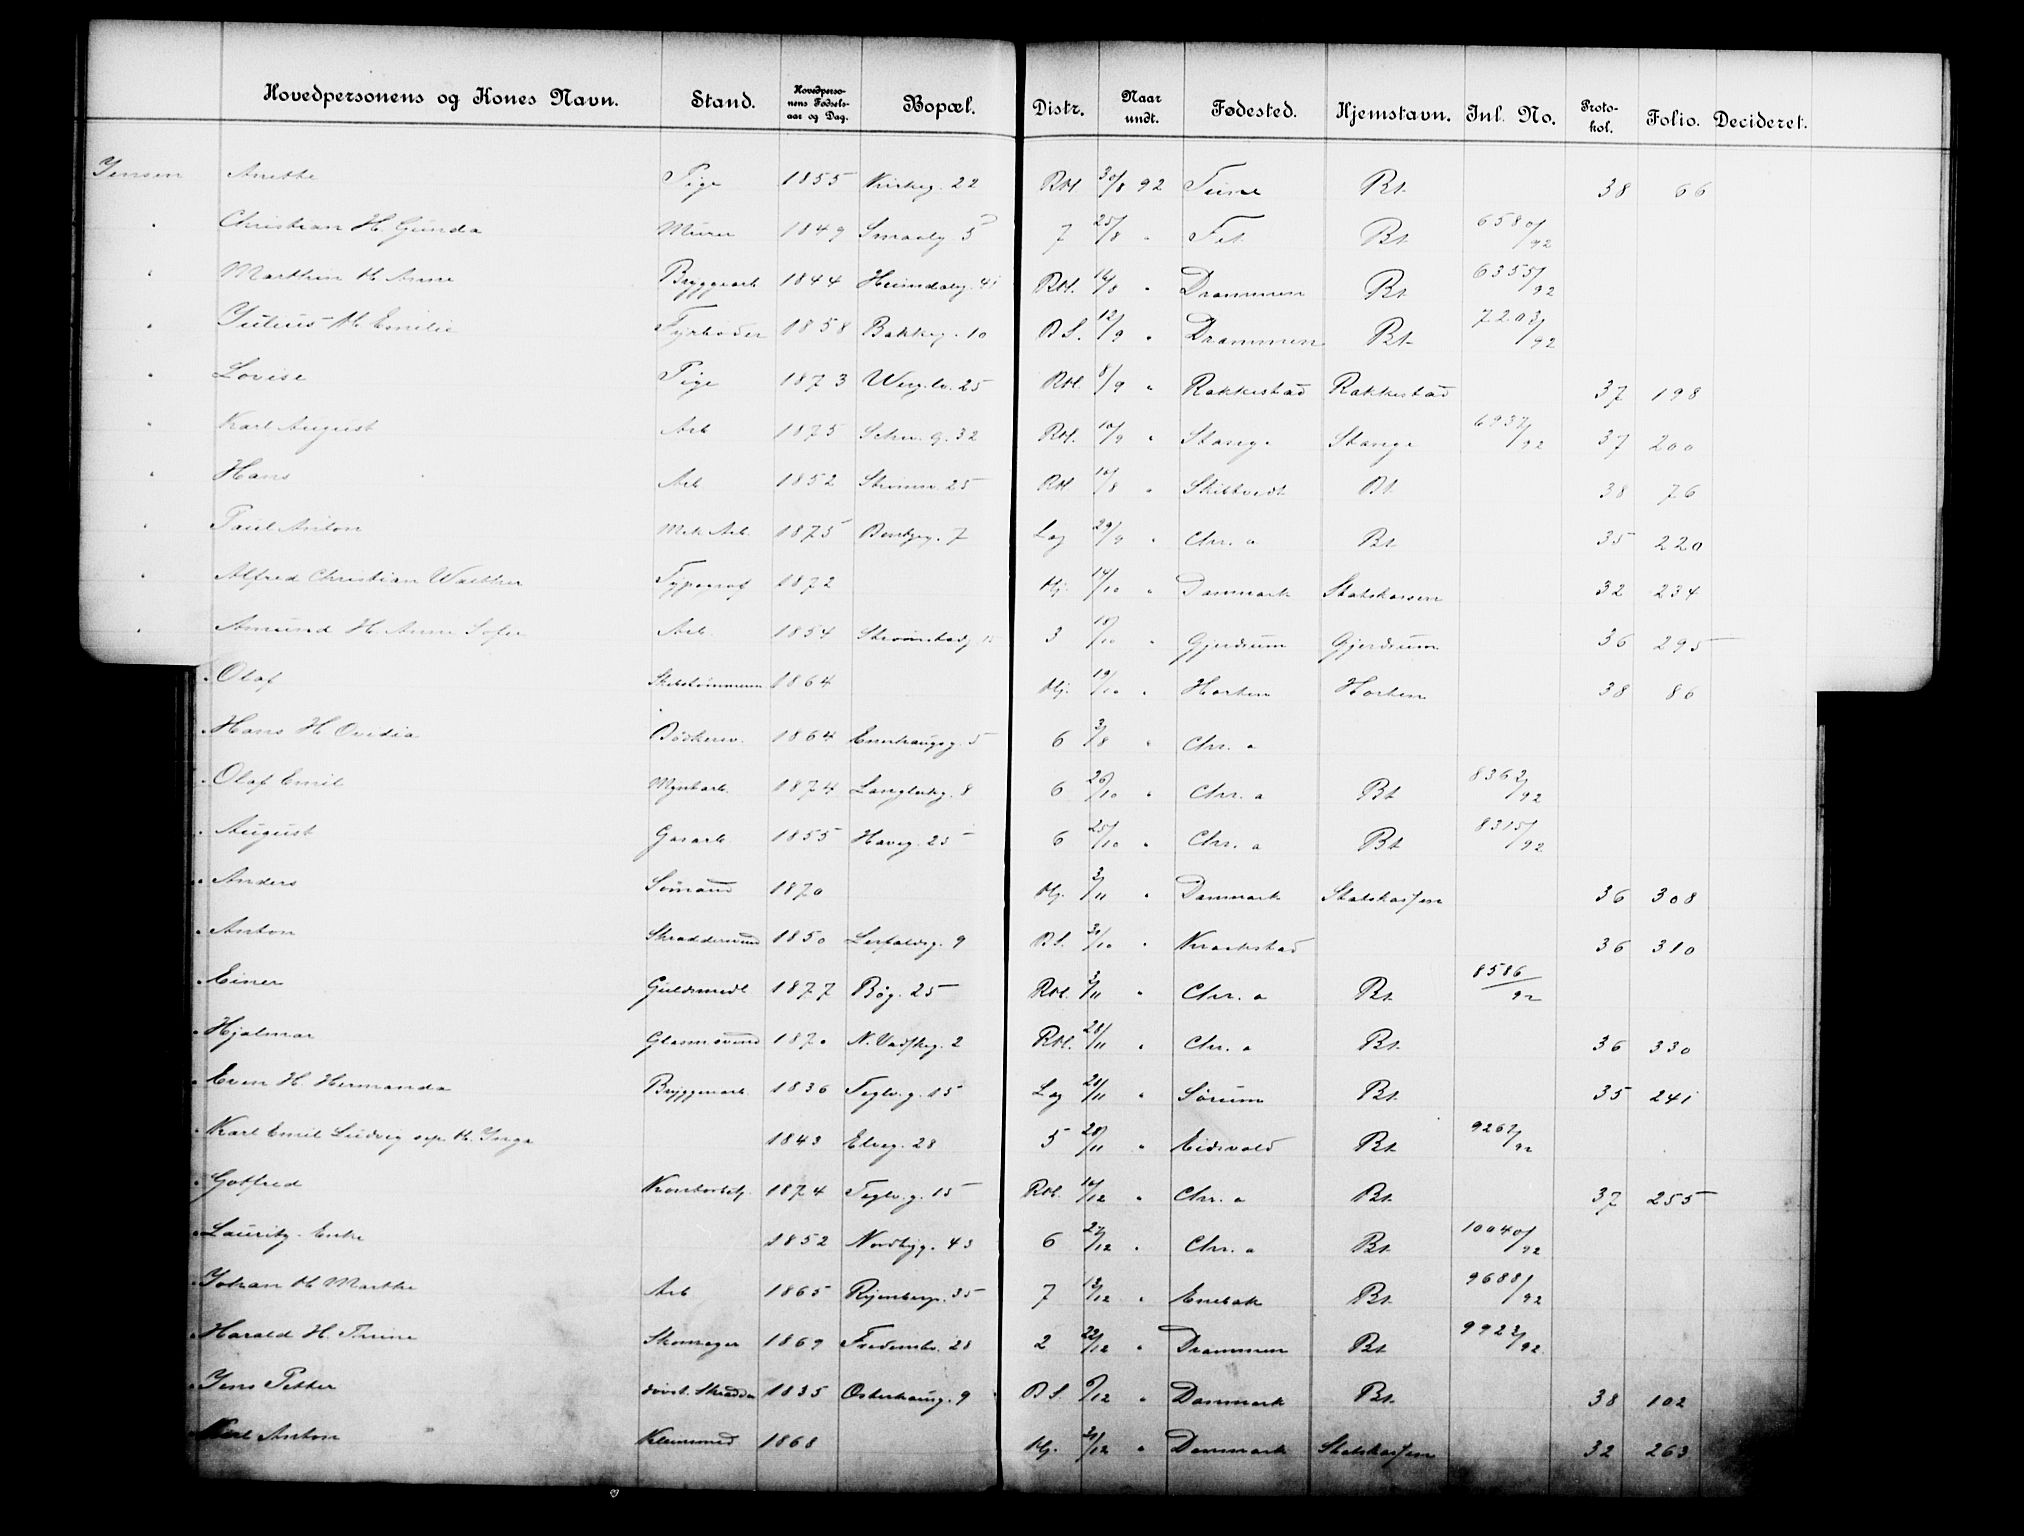 Hovedpersonens og Kones Navn. Stand. Hovedperso-nens Fødsels-aar og Dag. Bopæl. Distr. Naar undt. Fødested. Hjemstavn. Inl. No. Proto-kol. Folio. Decideret.
Jensen Anethe Pige 1855 Kirkeg. 22 RM. 30/8 92 Tune Bt. 38 66
" Christian H. Gunda Murer 1849 Smaalg 5 7 25/8 " Fet Bt. 6580/92
" Marthin H. Anne Bryggearb 1844 Heimdalsg. 41 RM. 16/8 " Drammen Bt. 6355/92
" Julius H. Emilie Fyrbøder 1858 Bakkeg. 10 BS. 12/9 " Drammen Bt. 7203/92
" Lovise Pige 1873 Werg.lv. 25 RM. 8/9 " Rakkestad Rakkestad 37 198
" Karl August Arb 1875 Schw. g. 32 RM. 10/9 " Stange Stange 6937/92 37 200
" Hans Arb 1852 Strømsv. 25 RM 16/8 " Skibtvedt Bt. 38 76
" Paul Anton Mek Arb. 1875 7 Lag 29/9 " Chr. a Bt 35 220
" Alfred Christian Walther Typograf 1872 Hj. 14/10 " Danmark Statskassen 32 234
" Amund H. Anne Sofie Arb. 1854 Strømstadg 15 3 18/10 " Gjerdrum Gjerdrum 36 295
" Olaf Skibstømmerm 1864 Hj. 19/10 " Horten Horten 38 86
" Hans H. Ovidia Bødkersv. 1864 Enerhaugsg. 5 6 3/8 " Chr. a
" Olaf Emil Myntarb. 1874 Langleikg. 8 6 26/10 " Chr. a Bt 8362/92
" August Gasarb. 1855 Haveg. 25 6 25/10 " Chr. a Bt 8315/92
" Anders Sømand 1870 Hj. 3/11 " Danmark Statskassen 36 308
" Anton Skræddersvend 1850 Lerfaldsg. 9 BS. 31/10 " Kraakstad 36 310
" Einer Guldsmedl 1877 Bøg. 25 RM. 3/11 " Chr. a Bt 8586/92
" Hjalmar Glasmsvend 1870 N. Vadskg. 2 RM. 28/11 " Chr. a Bt. 36 330
" Even H. Hermanda Bryggearb. 1836 Teglv.g. 15 Lag 21/11 " Sørum Bt. 35 241
" Karl Emil Ludvig sep. H. Inga 1843 Elveg. 28 5 28/11 " Eidsvold Bt. 9267/92
" Gotfred Kontorbetj. 1874 Teglv.g. 15 RM. 16/12 " Chr. a Bt. 37 255
" Lauritz Enke 1852 Nordbyg. 43 6 27/12 " Chr. a Bt. 10040/92
" Johan H. Marthe Arb 1865 Ryenbergv. 35 7 13/12 " Enebak Bt. 9688/92
" Harald H. Thrine Skomager 1869 Fredensbv. 28 2 22/12 " Drammen Bt 9922/92
" Jens Petter Skrædder 1835 Østerhausg. 9 BS 6/12 " Danmark Bt. 38 102
" Karl Anton Kleinsmed 1868 Hj. 31/12 " Danmark Statskassen 32 263